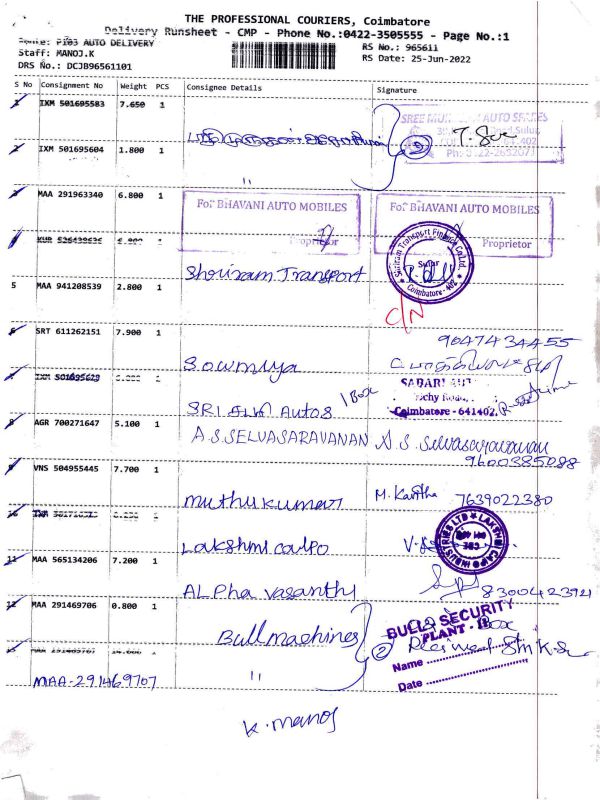 THE PROFESSIONAL COURIERS, Coimbatore
Delivery Runsheet - CMP - Phone No.:0422-3505555 - Page No.:1
Route: P103 AUTO DELIVERY
RS No.: 965611
Staff: MANOJ.K
RS Date: 25-Jun-2022
DRS No.: DCJB96561101
S No Consignment No Weight PCS Consignee Details Signature
1 IXM 501695583 7.650 1
SREE AUTO SPARES
2 IXM 501695604 1.800 1
"
3 MAA 291963340 6.800 1
For BHAVANI AUTO MOBILES
Proprietor
For BHAVANI AUTO MOBILES
Proprietor
KUR 526438636 1
Shriram Transport
Shriram Transport Finance Co.Ltd.
Sulur
Coimbatore - 402
5 MAA 941208539 2.800 1
C/N
6 SRT 611262151 7.900 1
Sowmiya
9047434455
1
SRI Autos
1 Box
SABARI AUT
Trichy Road,
Coimbatore - 641402.
8 AGR 700271647 5.100 1
A.S.SELVASARAVANAN A.S. Selvasaravanan
9600385088
9 VNS 504955445 7.700 1
Muthukumar
M. Kavitha 7639022380
10 1
Lakshmi Caipo
LAKSHMI CAIPO INDUSTRIES LTD
11 MAA 565134206 7.200 1
ALPha vasanthi
8300423921
12 MAA 291469706 0.800 1
Bull machines
2
BULL SECURITY
PLANT - II
Name
Date
1
MAA-291469707
"
K. Manoj